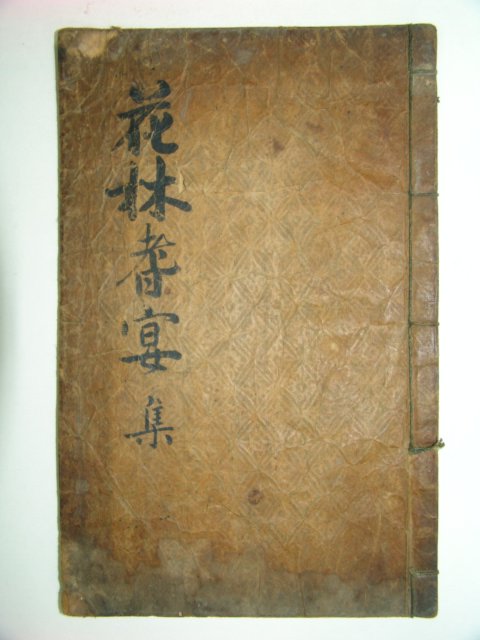 花林耆宴集